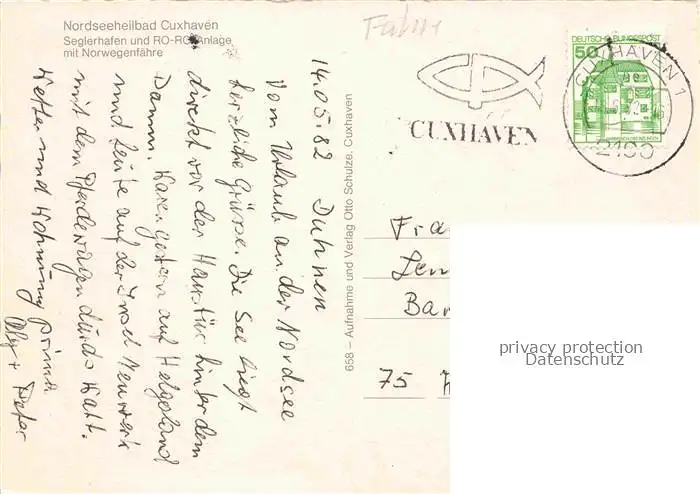 Nordseeheilbad Cuxhaven
Seglerhafen und RO-RO-Anlage
mit Norwegenfähre
14.05.82 Duhnen
Vom Urlaub an der Nordsee
herzliche Grüsse. Die See liegt
direkt vor der Haustür hinter dem
Damm. Waren gestern auf Helgoland
und heute auf der Insel Neuwerk
mit dem Pferdewagen durchs Watt.
Wetter und Wohnung prima
Olly + Peter
658 – Aufnahme und Verlag Otto Schulze, Cuxhaven
CUXHAVEN
DEUTSCHE BUNDESPOST
50
CUXHAVEN 1
2190
Fra
Len
Bar
75
privacy protection
Datenschutz